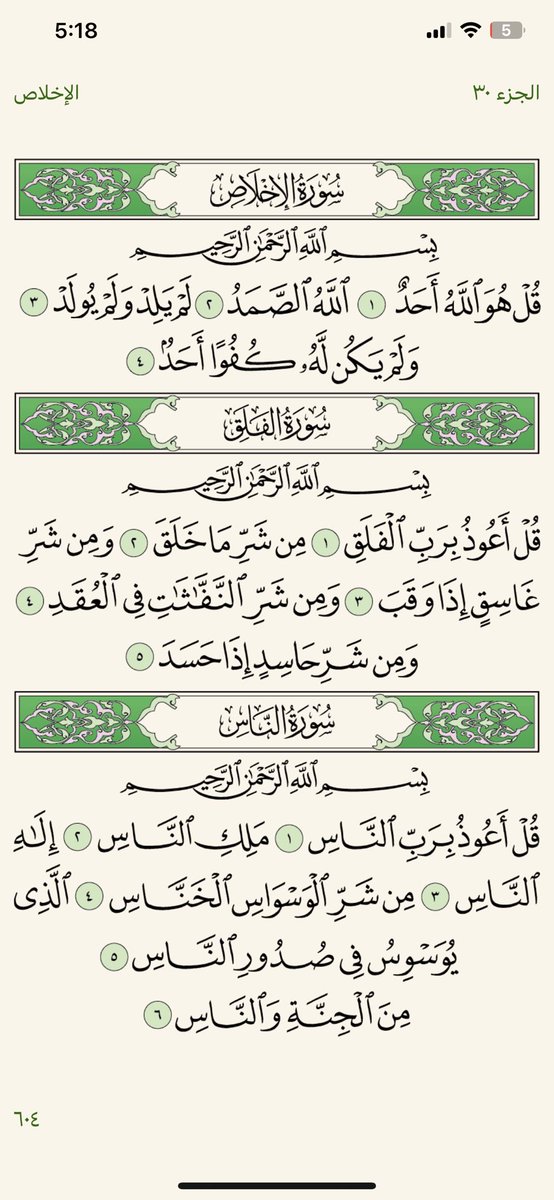 5:18
5
الجزء ٣٠
الإخلاص
سُورَةُ الإِخْلَاصِ
بِسْمِ ٱللَّهِ ٱلرَّحْمَٰنِ ٱلرَّحِيمِ
قُلْ هُوَ ٱللَّهُ أَحَدٌ ١ ٱللَّهُ ٱلصَّمَدُ ٢ لَمْ يَلِدْ وَلَمْ يُولَدْ ٣
وَلَمْ يَكُن لَّهُۥ كُفُوًا أَحَدٌۢ ٤
سُورَةُ الفَلَقِ
بِسْمِ ٱللَّهِ ٱلرَّحْمَٰنِ ٱلرَّحِيمِ
قُلْ أَعُوذُ بِرَبِّ ٱلْفَلَقِ ١ مِن شَرِّ مَا خَلَقَ ٢ وَمِن شَرِّ
غَاسِقٍ إِذَا وَقَبَ ٣ وَمِن شَرِّ ٱلنَّفَّٰثَٰتِ فِي ٱلْعُقَدِ ٤
وَمِن شَرِّ حَاسِدٍ إِذَا حَسَدَ ٥
سُورَةُ النَّاسِ
بِسْمِ ٱللَّهِ ٱلرَّحْمَٰنِ ٱلرَّحِيمِ
قُلْ أَعُوذُ بِرَبِّ ٱلنَّاسِ ١ مَلِكِ ٱلنَّاسِ ٢ إِلَٰهِ
ٱلنَّاسِ ٣ مِن شَرِّ ٱلْوَسْوَاسِ ٱلْخَنَّاسِ ٤ ٱلَّذِى
يُوَسْوِسُ فِى صُدُورِ ٱلنَّاسِ ٥
مِنَ ٱلْجِنَّةِ وَٱلنَّاسِ ٦
٦٠٤